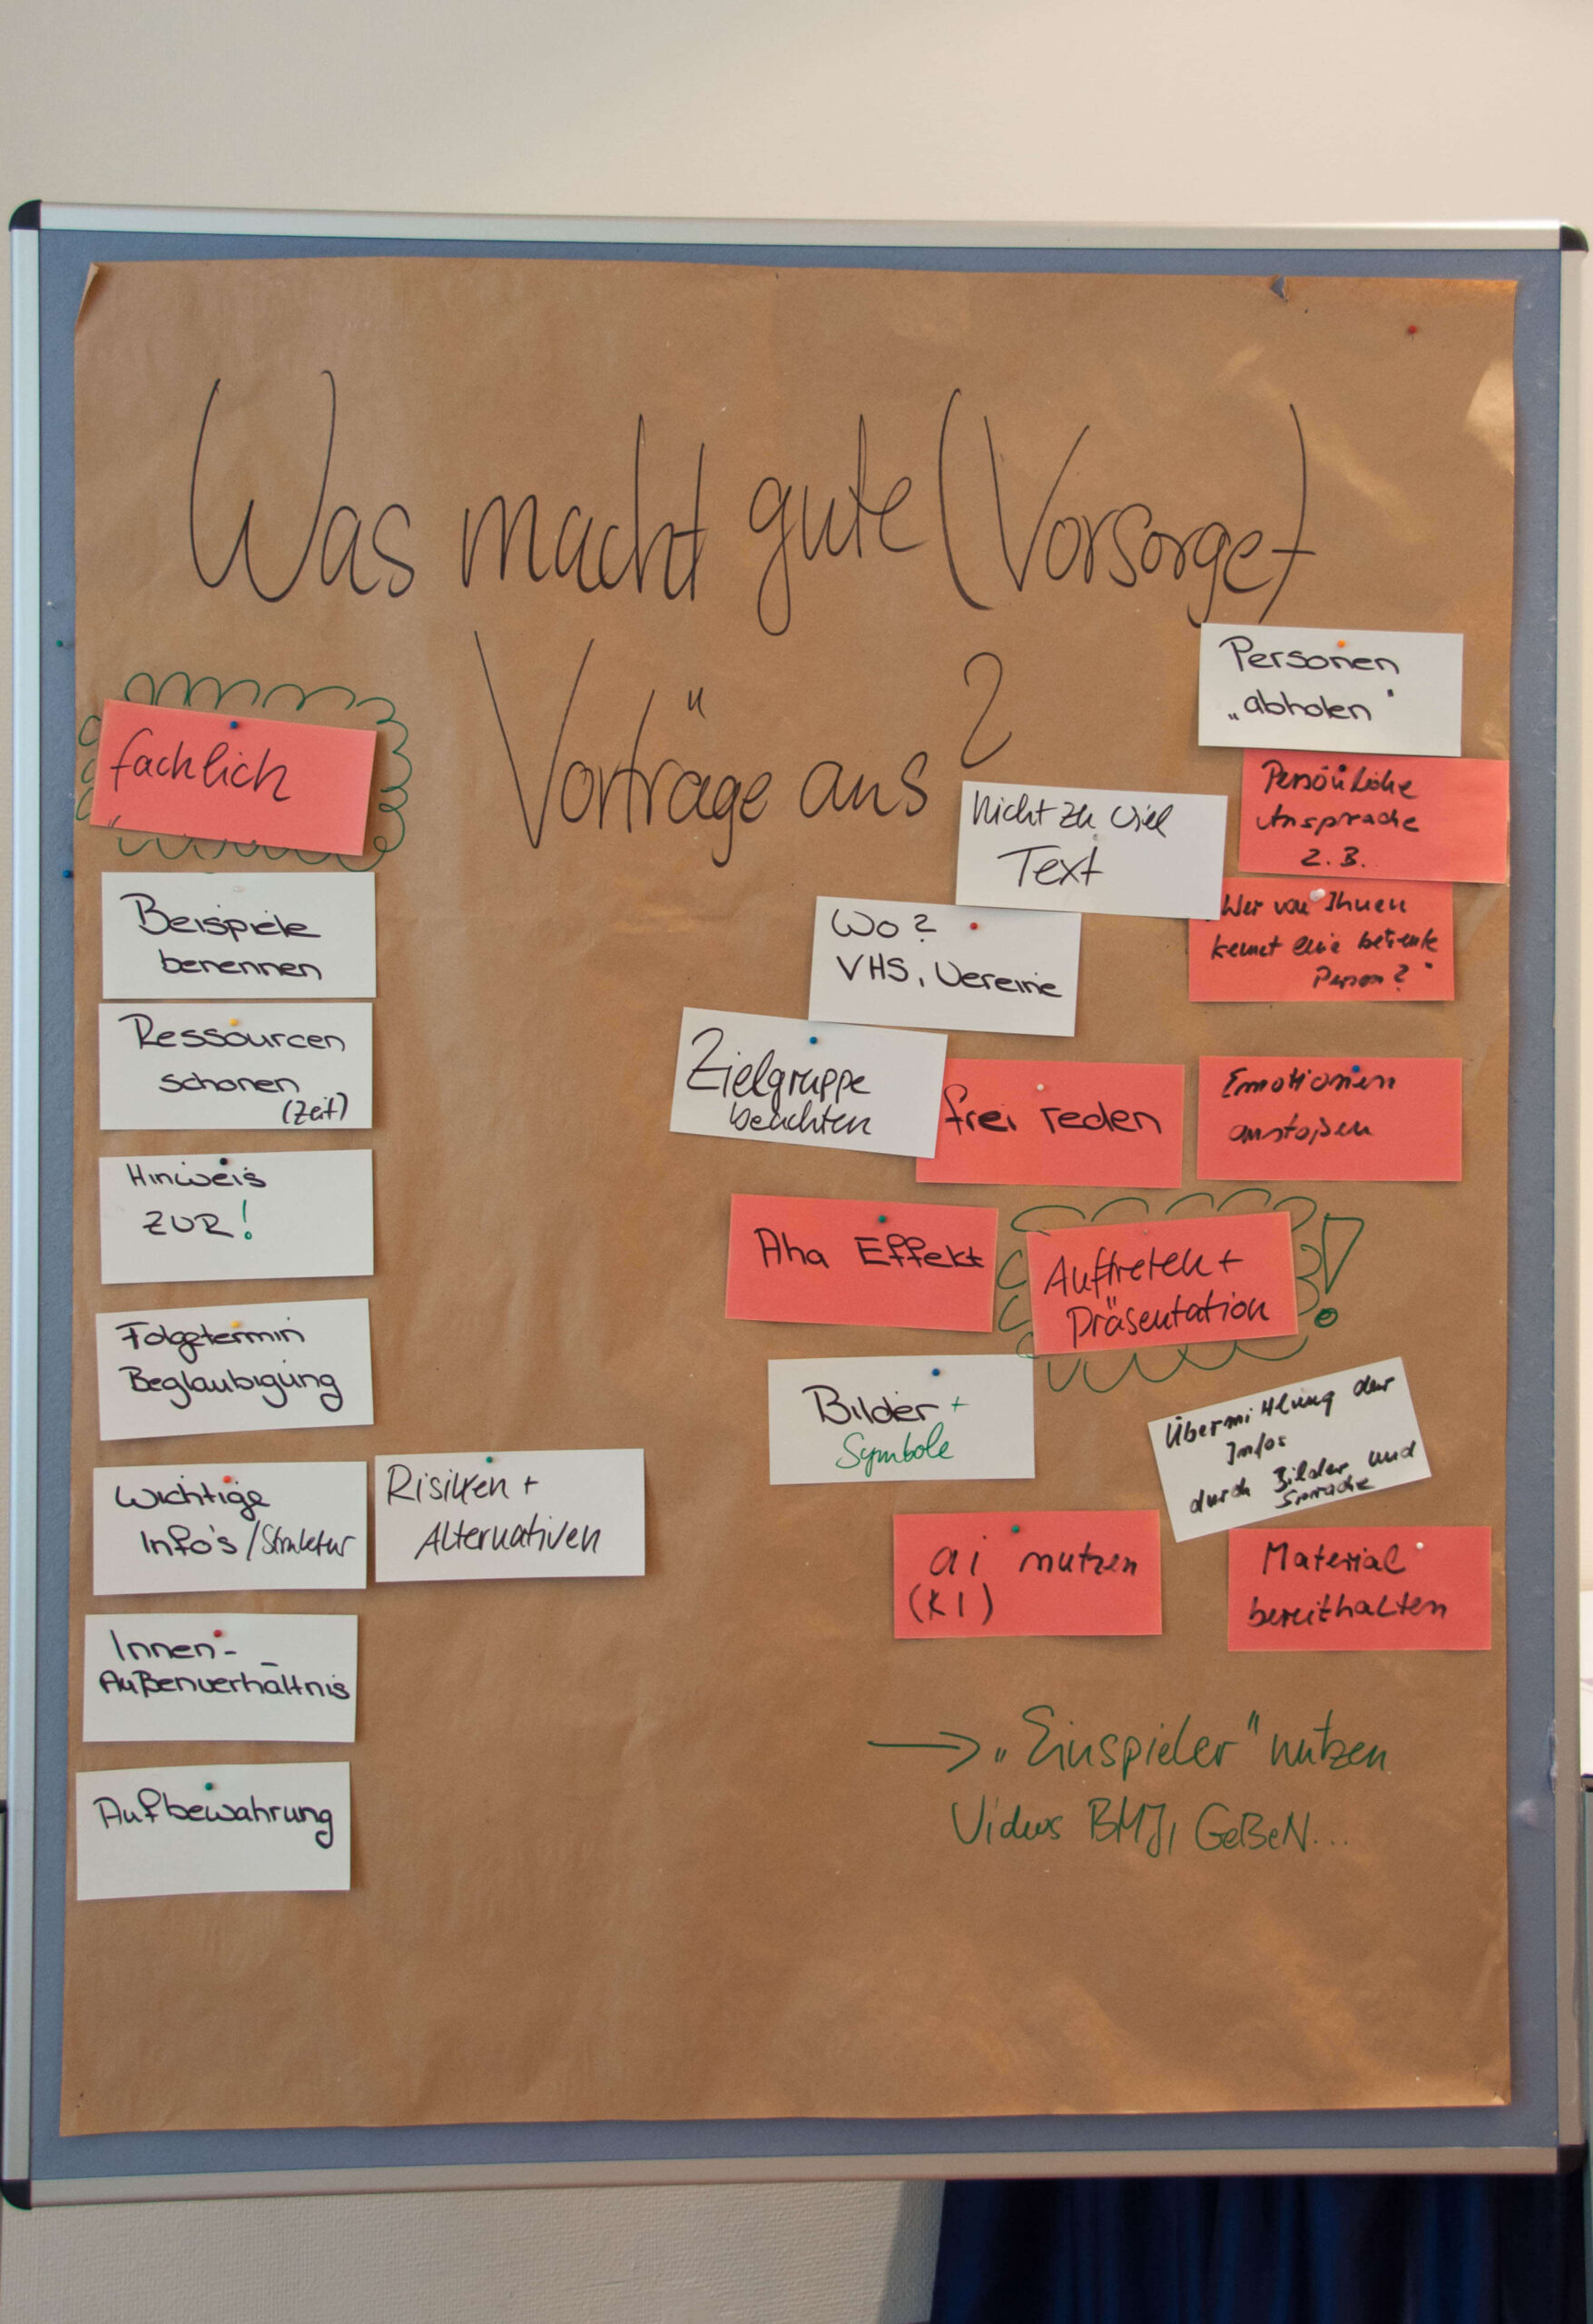 Was macht gute (Vorsorge-)
Vorträge aus?
fachlich
Beispiele
benennen
Ressourcen
schonen
(Zeit)
Hinweis
ZVR!
Folgetermin
Beglaubigung
Wichtige
Info's /Struktur
Risiken +
Alternativen
Innen-
Außenverhältnis
Aufbewahrung
Personen
„abholen"
Persönliche
Ansprache
z.B.
Wer von Ihnen
kennt eine betreute
Person?"
Nicht zu viel
Text
Wo?
VHS, Vereine
Zielgruppe
beachten
frei reden
Emotionen
anstoßen
Aha Effekt
Auftreten +
Präsentation
!
Bilder +
Symbole
Übermittlung der
Infos
durch Bilder und
Sprache
ai nutzen
(KI)
Material
bereithalten
→ „Einspieler" nutzen
Videos BMJ, GeBeN...